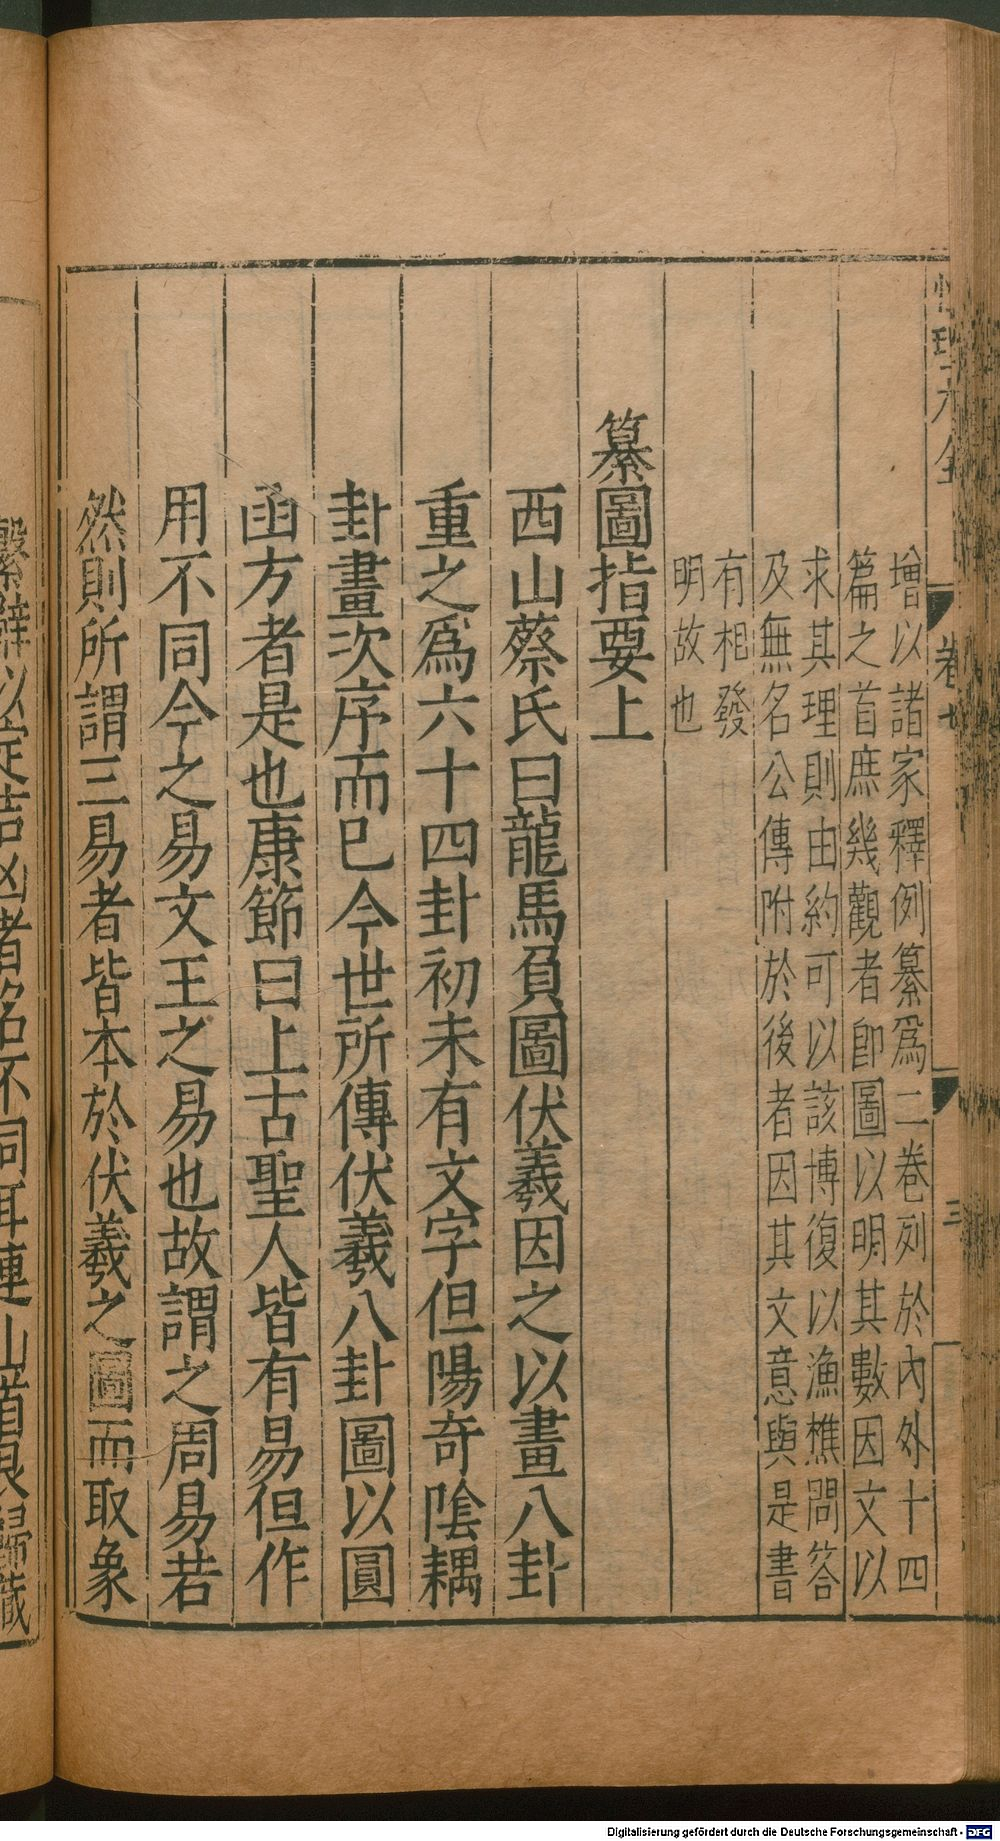 性理大全
卷七
三
增以諸家釋例纂爲二卷列於內外十四
篇之首庶幾觀者即圖以明其數因文以
求其理則由約可以該博復以漁樵問答
及無名公傳附於後者因其文意與是書
有相發
明故也
纂圖指要上
西山蔡氏曰龍馬負圖伏羲因之以畫八卦
重之爲六十四卦初未有文字但陽奇陰耦
卦畫次序而已今世所傳伏羲八卦圖以圓
函方者是也康節曰上古聖人皆有易但作
用不同今之易文王之易也故謂之周易若
然則所謂三易者皆本於伏羲之圖而取象
繫辭以定吉凶者名不同耳連山首艮歸藏
Digitalisierung gefördert durch die Deutsche Forschungsgemeinschaft - DFG